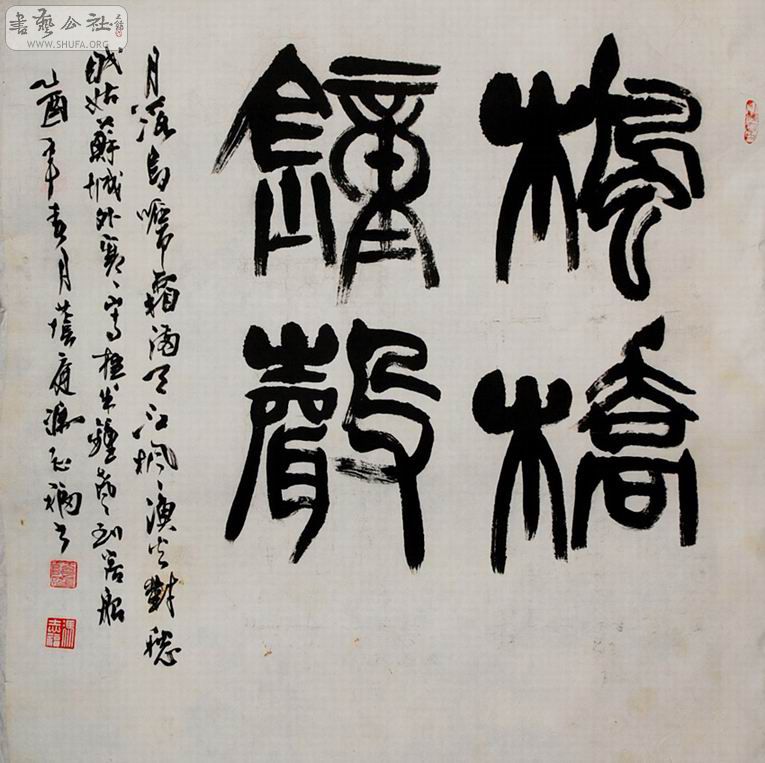 書藝公社
WWW.SHUFA.ORG
楓橋
鐘聲
月落烏啼霜滿天江楓漁火對愁
眠姑蘇城外寒山寺夜半鐘聲到客船
乙酉年月庭馮志福書